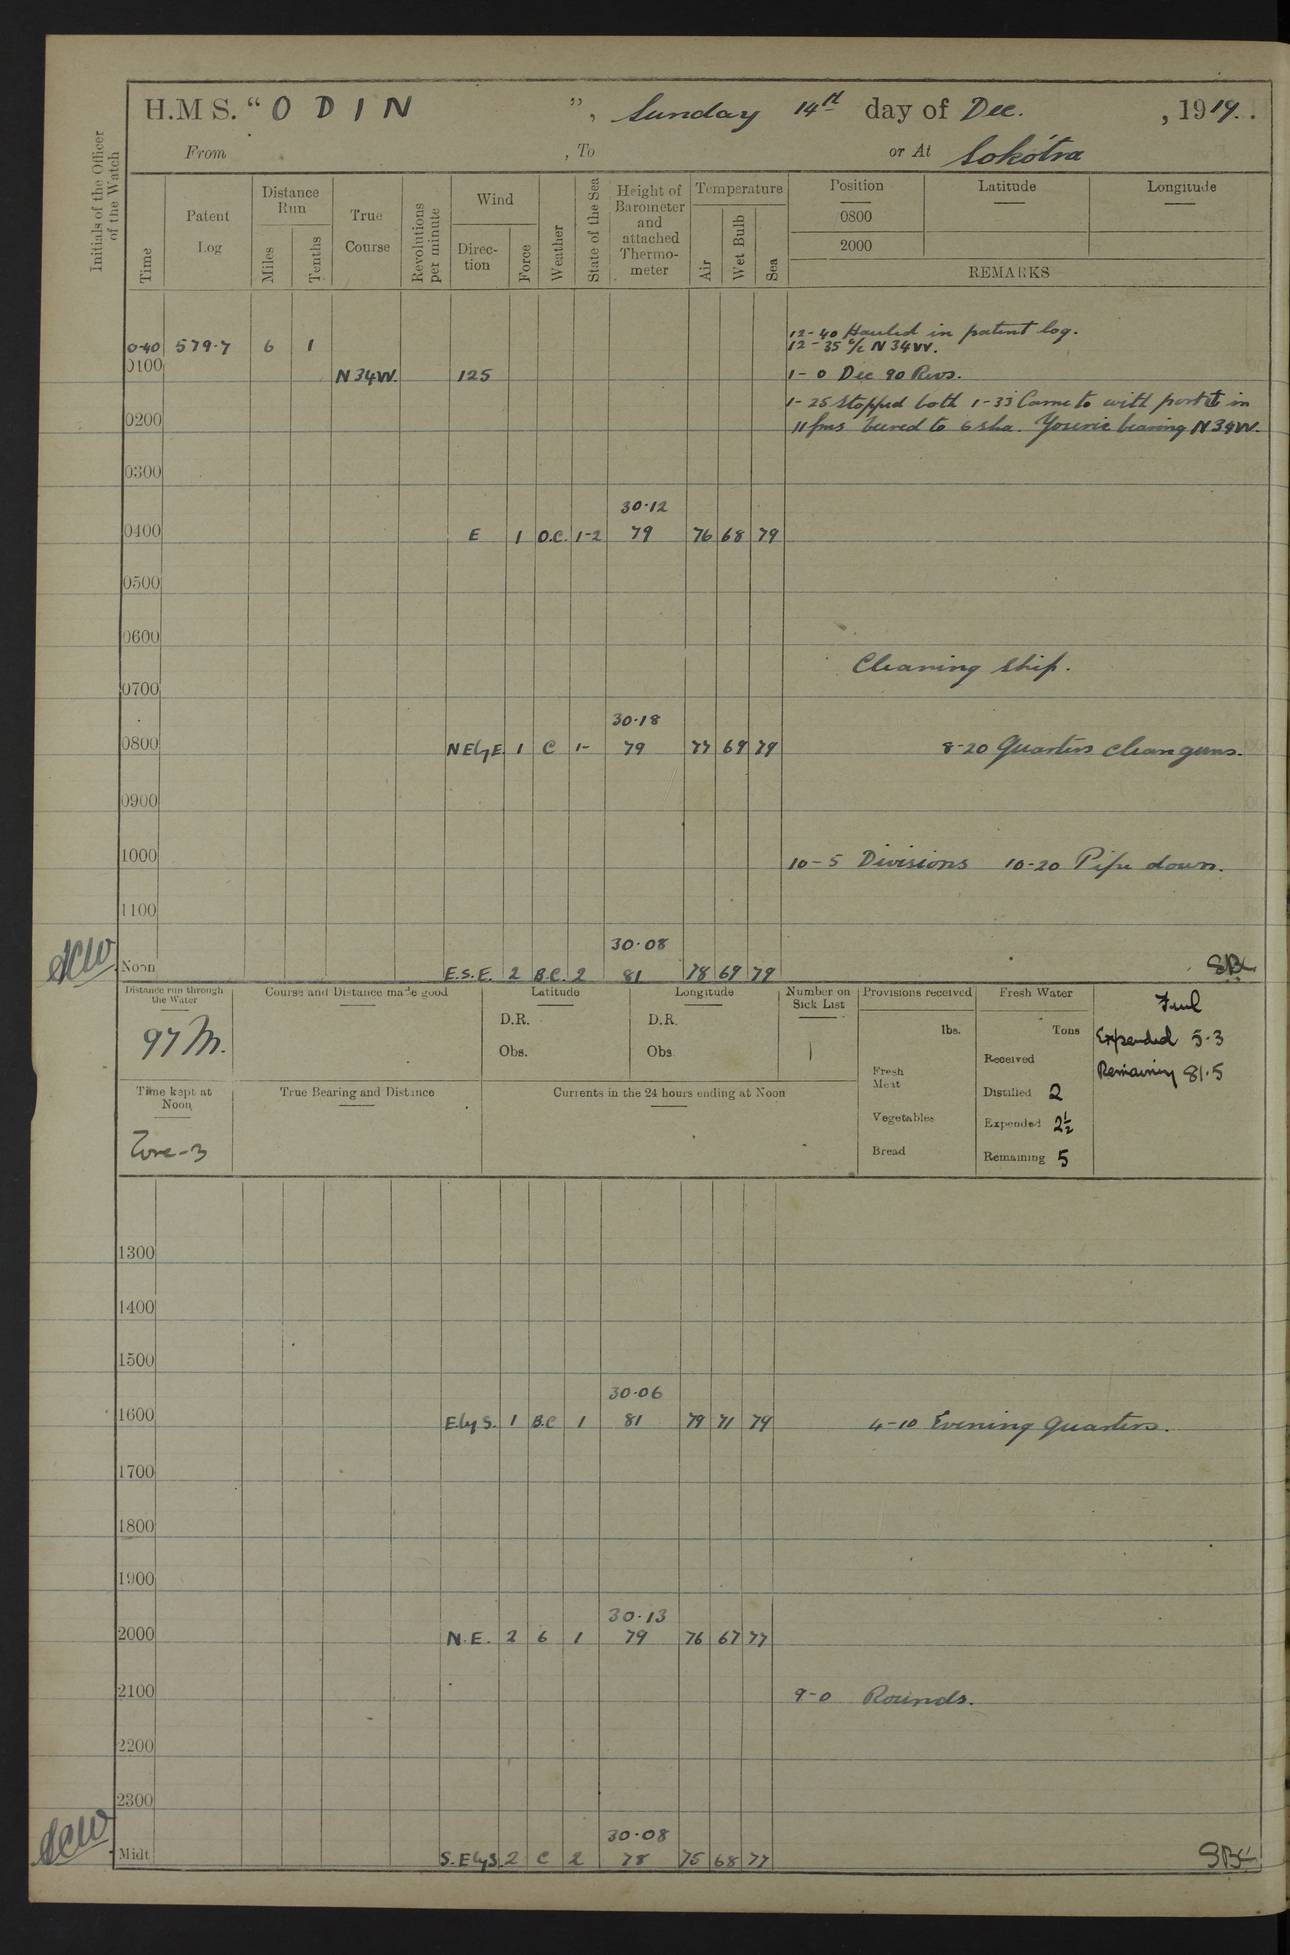 H.M S. “ O D I N ”, Sunday 14th day of Dec. , 1919.
From , To or At Sokótra
Initials of the Officer of the Watch
Time
Patent Log
Distance Run
Miles
Tenths
True Course
Revolutions per minute
Wind
Direc-tion
Force
Weather
State of the Sea
Height of Barometer and attached Thermo-meter
Temperature
Air
Wet Bulb
Sea
Position
0800
2000
Latitude
Longitude
REMARKS
12-40 Hauled in patent log.
0-40 579·7 6 1 12-35 a/c N 34 W.
0100 N 34 W. 125 1-0 Dec 90 Revs.
1-25 Stopped both 1-33 Came to with port in
0200 11 fms veered to 6 sha. bearing N 34 W.
0300
30·12
0400 E 1 O.C. 1-2 79 76 68 79
0500
0600
Cleaning Ship.
0700
30·18
0800 N E by E. 1 C 1- 79 77 69 79 8-20 Quarters clean guns.
0900
1000 10-5 Divisions 10-20 Pipe down.
1100
30·08
Noon E.S.E. 2 B.C. 2 81 78 69 79
Distance run through the Water
97 M.
Course and Distance made good
Latitude
D.R.
Obs.
Longitude
D.R.
Obs
Number on Sick List
1
Provisions received
lbs.
Fresh Meat
Vegetables
Bread
Fresh Water
Tons
Received
Distilled 2
Expended 2½
Remaining 5
Fuel
Expended 5·3
Remaining 81·5
Time kept at Noon
Zone -3
True Bearing and Distance
Currents in the 24 hours ending at Noon
1300
1400
1500
30·06
1600 E by S. 1 B.C 1 81 79 71 79 4-10 Evening Quarters.
1700
1800
1900
30·13
2000 N.E. 2 6 1 79 76 67 77
2100 9-0 Rounds.
2200
2300
30·08
Midt S. E by S. 2 C 2 78 75 68 77